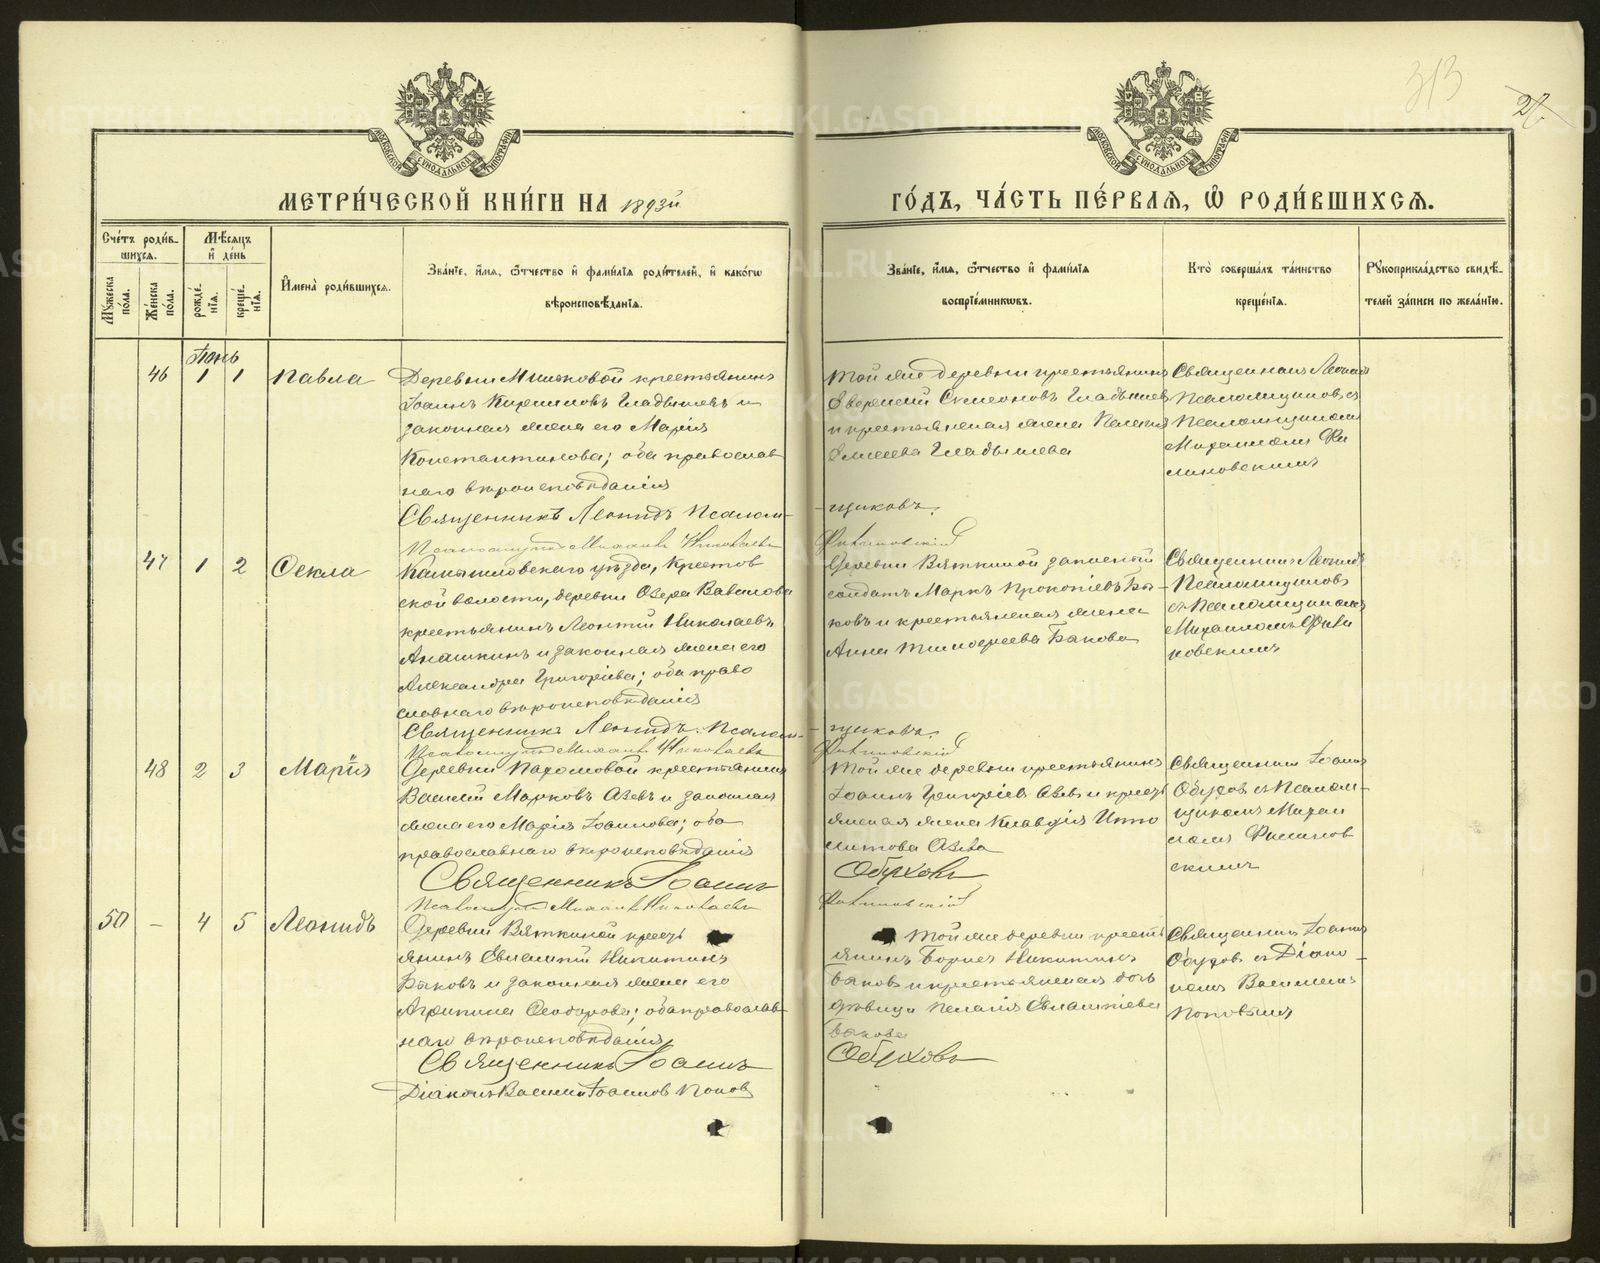 313
27
МЕТРИ́ЧЕСКОЙ КНИ́ГИ НА 1893й
ГО́ДЪ, ЧА́СТЬ ПЕ́РВАЯ, Ѿ РОДИ́ВШИХСЯ.
Сче́тъ роди́в-
шихся.
Мꙋ́жеска по́ла.
Же́нска по́ла.
Мѣ́сяцъ и҆ де́нь
рожде́-нїя.
креще́-нїя.
И҆мена̀ роди́вшихся.
Зва́нїе, и҆́мя, ѻ҆́тчество и҆ фами́лїя роди́телей, и҆ како́гѡ
вѣроисповѣ́данїя.
Зва́нїе, и҆́мя, ѻ҆́тчество и҆ фами́лїя
воспрїе́мникѡвъ.
Кто̀ соверша́лъ та́инство
креще́нїя.
Рꙋкоприкла́дство свидѣ́-
телей за́писи по жела́нїю.
Іюнь
46 1 1 Павла
Деревни Мишковой крестьянинъ
Іоаннъ Кирилловъ Гладышевъ и
законная жена его Марія
Константинова; оба православ
наго вѣроисповѣданія
Священникъ Леонидъ Псалом-
Псаломщикъ Михаилъ Николаевъ
Той же деревни крестьянинъ
Симеоновъ Гладышев
и крестьянская жена Пелагія
Елисеева Гладышева
-щиковъ.
Филиновскій
Священник Леонид
Псаломщиков съ
Псаломщиком
Михаилом Фи
линовскимъ
47 1 2 Ѳекла
Камышловскаго уѣзда, Крестов
ской волости, деревни Озера Вавилова
крестьянинъ Леонтій Николаевъ
Анашкинъ и законная жена его
Александра Григоріева; оба право
славнаго вѣроисповѣданія
Священникъ Леонидъ Псалом-
Псаломщикъ Михаилъ Николаевъ
Деревни Вяткиной запасной
солдатъ Маркъ Прокопіевъ Бы-
ковъ и крестьянская жена
Анна Тимофеева Быкова
-щиковъ.
Филиновскій
Священник Леонидъ
Псаломщиковъ
съ Псаломщикомъ
Михаиломъ Фили
новскимъ
48 2 3 Марія
Деревни Пахомовой крестьянинъ
Василій Марковъ Азевъ и законная
жена его Марія Іоаннова; оба
православнаго вѣроисповѣданія
Священникъ Іоаннъ
Псаломщикъ Михаилъ Николаевъ
Той же деревни крестьянинъ
Іоаннъ Григоріев Азевъ и крест
янская жена Клавдія Иппо
литова Азева
Обуховъ
Филиновскій
Священник Іоанн
Обухов съ Псалом-
щиком Михаи
лом Филинов
скимъ
50 – 4 5 Леонидъ
Деревни Вяткиной крест
янинъ Евлампій Никитинъ
Быковъ и законная жена его
Агрипина Ѳеодорова; оба православ
наго вѣроисповѣданія
Священникъ Іоаннъ
Діаконъ Василій Іоаннов Попов
Той же деревни крест
янинъ Борисъ Никитинъ
Быковъ и крестьянская дочь
дѣвица Пелагія Евлампіева
Быкова
Обуховъ
Священник Іоанн
Обухов съ Діако-
ном Василіем
Поповымъ